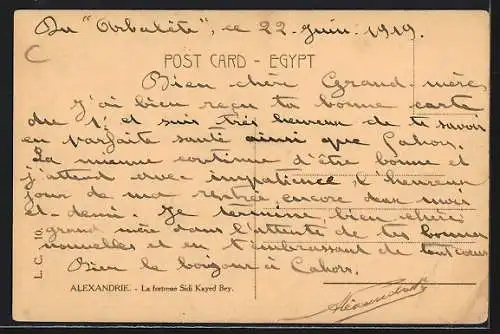 Du "Arbalète", ce 22 Juin 1919.
C
POST CARD - EGYPT
Bien chère Grand-mère
J'ai bien reçu ta bonne carte
du 1r et suis très heureux de te savoir
en parfaite santé ainsi que Cahors.
La mienne continue d'être bonne et
j'attend avec impatience, l'heureux
jour de ma rentrée, encore deux mois
et-demi. Je termine, bien chère
grand mère dans l'attente de tes bonnes
nouvelles et en t'embrassant de tout cœur
Bien le bonjour à Cahors.
L. C. 10.
ALEXANDRIE. - La forteresse Sidi Kayed Bey.